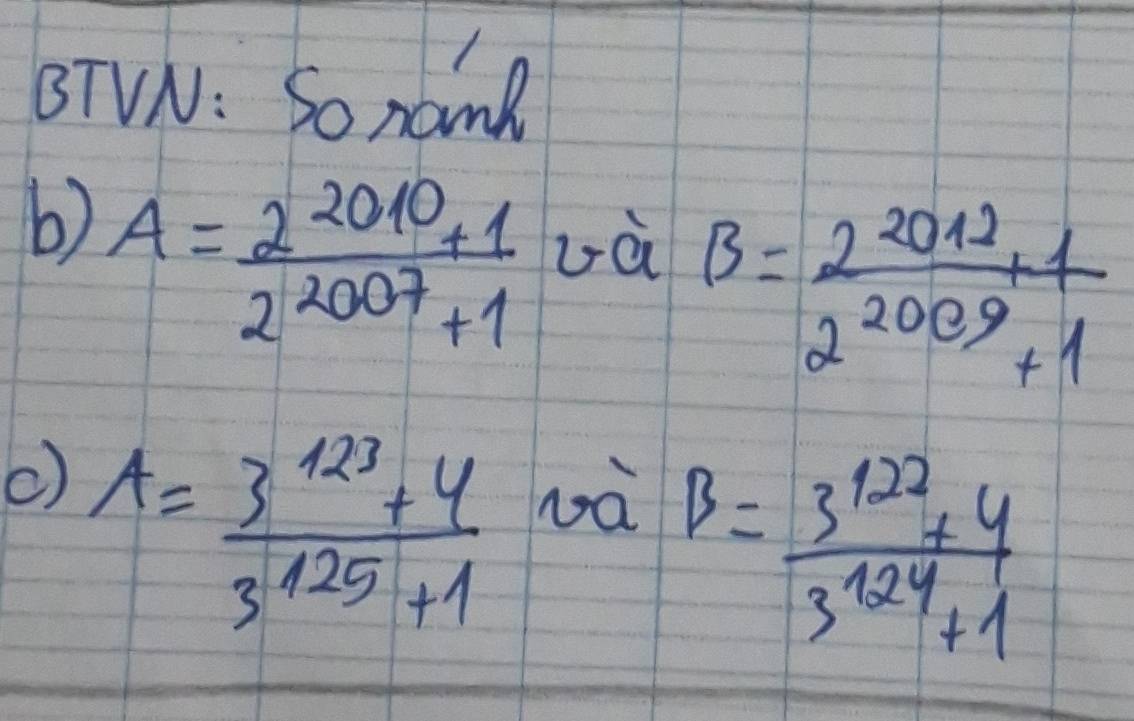 BTVN: So sánh
b) A = \frac{2^{2010}+1}{2^{2007}+1} và B = \frac{2^{2012}+1}{2^{2009}+1}
c) A = \frac{3^{123}+4}{3^{125}+1} và B = \frac{3^{122}+4}{3^{124}+1}